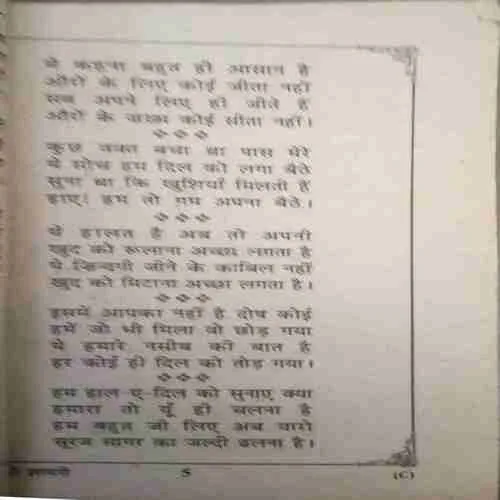 ये कहना बहुत ही आसान है
औरों के लिए कोई जीता नहीं
सब अपने लिए ही जीते हैं
औरों के जख्म कोई सीता नहीं।
कुछ वक्त बचा था पास मेरे
ये सोच हम दिल को लगा बैठे
सुना था कि खुशियाँ मिलती हैं
हाए! हम तो गम अपना बैठे।
ये हालत है अब तो अपनी
खुद को रूलाना अच्छा लगता है
ये जिन्दगी जीने के काबिल नहीं
खुद को मिटाना अच्छा लगता है।
इसमें आपका नहीं है दोष कोई
हमें जो भी मिला वो छोड़ गया
ये हमारे नसीब की बात है
हर कोई ही दिल को तोड़ गया।
हम हाल-ए-दिल को सुनाए क्या
हमारा तो यूँ ही चलना है
हम बहुत जी लिए अब यारो
सूरज सागर का जल्दी ढलना है।
5
(C)